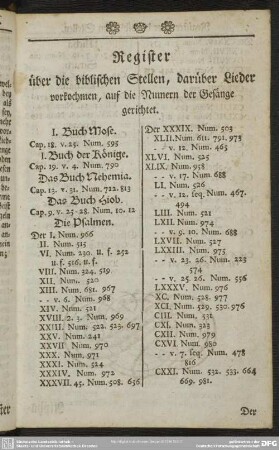 Register
über die biblischen Stellen, darüber Lieder
vorkommen, auf die Numern der Gesänge
gerichtet.
I. Buch Mose.
Cap. 18. v. 25. Num. 595
I. Buch der Könige.
Cap. 19. v. 4. Num. 790
Das Buch Nehemia.
Cap. 13. v. 31. Num. 722. 813
Das Buch Hiob.
Cap. 9. v. 25-28. Num. 10. 12
Die Psalmen.
Der I. Num. 966
II. Num. 515
VI. Num. 230. u. f. 252
u. f. 516. u. f.
VIII. Num. 524. 519
XII. Num. 520
XIII. Num. 681. 967
- - v. 6. Num. 968
XIV. Num. 521
XVIII. 2. 3. Num. 969
XXIII. Num. 522. 523. 697
XXV. Num. 241
XXVII. Num. 970
XXX. Num. 971
XXXI. Num. 524
XXXIV. Num. 972
XXXVII. 45. Num. 508. 656
Der XXXIX. Num. 503
XLII. Num. 611. 792. 973
- - v. 12. Num. 465
XLVI. Num. 525
XLIX. Num. 958
- - v. 17. Num. 688
LI. Num. 526
- - v. 12. seq. Num. 467.
494
LIII. Num. 521
LXII. Num. 974
LXIX. v. 9. 10. Num. 688
LXVII. Num. 527
LXXIII. Num. 975
- - v. 23. 26. Num. 223
574
- - v. 25. 26. Num. 556
LXXXV. Num. 976
XC. Num. 528. 977
XCI. Num. 529. 530. 976
CIII. Num. 531
CXI. Num. 323
CXII. Num. 979
CXVI. Num. 980
- - v. 7. seq. Num. 478
816
CXXI. Num. 532. 533. 664
669. 981.
Der